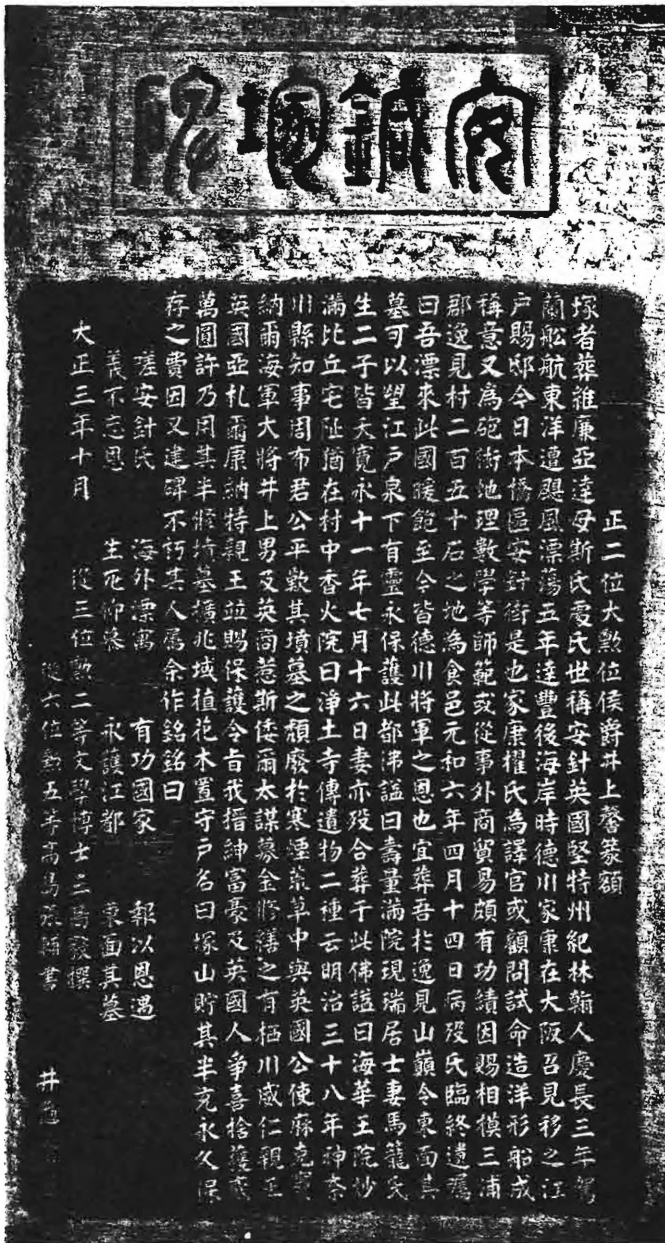 安鍼塚碑
正二位大勲位侯爵井上馨篆額
塚者葬維廉亞達母斯氏處氏世稱安針英國堅特州紀林翰人慶長三年駕
蘭舩航東洋遭颶風漂蕩五年達豐後海岸時德川家康在大阪召見移之江
戸賜邸今日本橋區安針街是也家康擢氏為譯官或顧問試命造洋形船成
稱意又為砲術地理數學等師範或從事外商貿易頗有功績因賜相模三浦
郡逸見村二百五十石之地為食邑元和六年四月十四日病歿氏臨終遺囑
曰吾漂來此國暖飽至今皆德川將軍之恩也宜葬吾於逸見山巓令東面其
墓可以望江戸泉下有靈永保護此都佛謚曰壽量滿院現瑞居士妻馬籠氏
生二子皆夭寛永十一年七月十六日妻亦歿合葬于此佛謚曰海華王院妙
滿比丘宅阯猶在村中香火院曰淨土寺傳遺物二種云明治三十八年神奈
川縣知事周布君公平歎其墳墓之頽廢於寒煙荒草中與英國公使麻克
納爾海軍大將井上男及英商惹斯倭爾太謀募金修繕之有栖川威仁親王
英國亞札爾康納特親王並賜保護令旨我搢紳富豪及英國人爭喜捨獲
萬圓許乃用其半修墳墓擴兆域植花木置守戸名曰塚山貯其半充永久保
存之費因又建碑不朽其人屬余作銘銘曰
嗟安針氏 海外漂寓 有功國家 報以恩遇
義不忘恩 生死仰慕 永護江都 東面其墓
大正三年十月 從三位勲二等文學博士三島毅撰
從六位勲五等高島張輔書
井